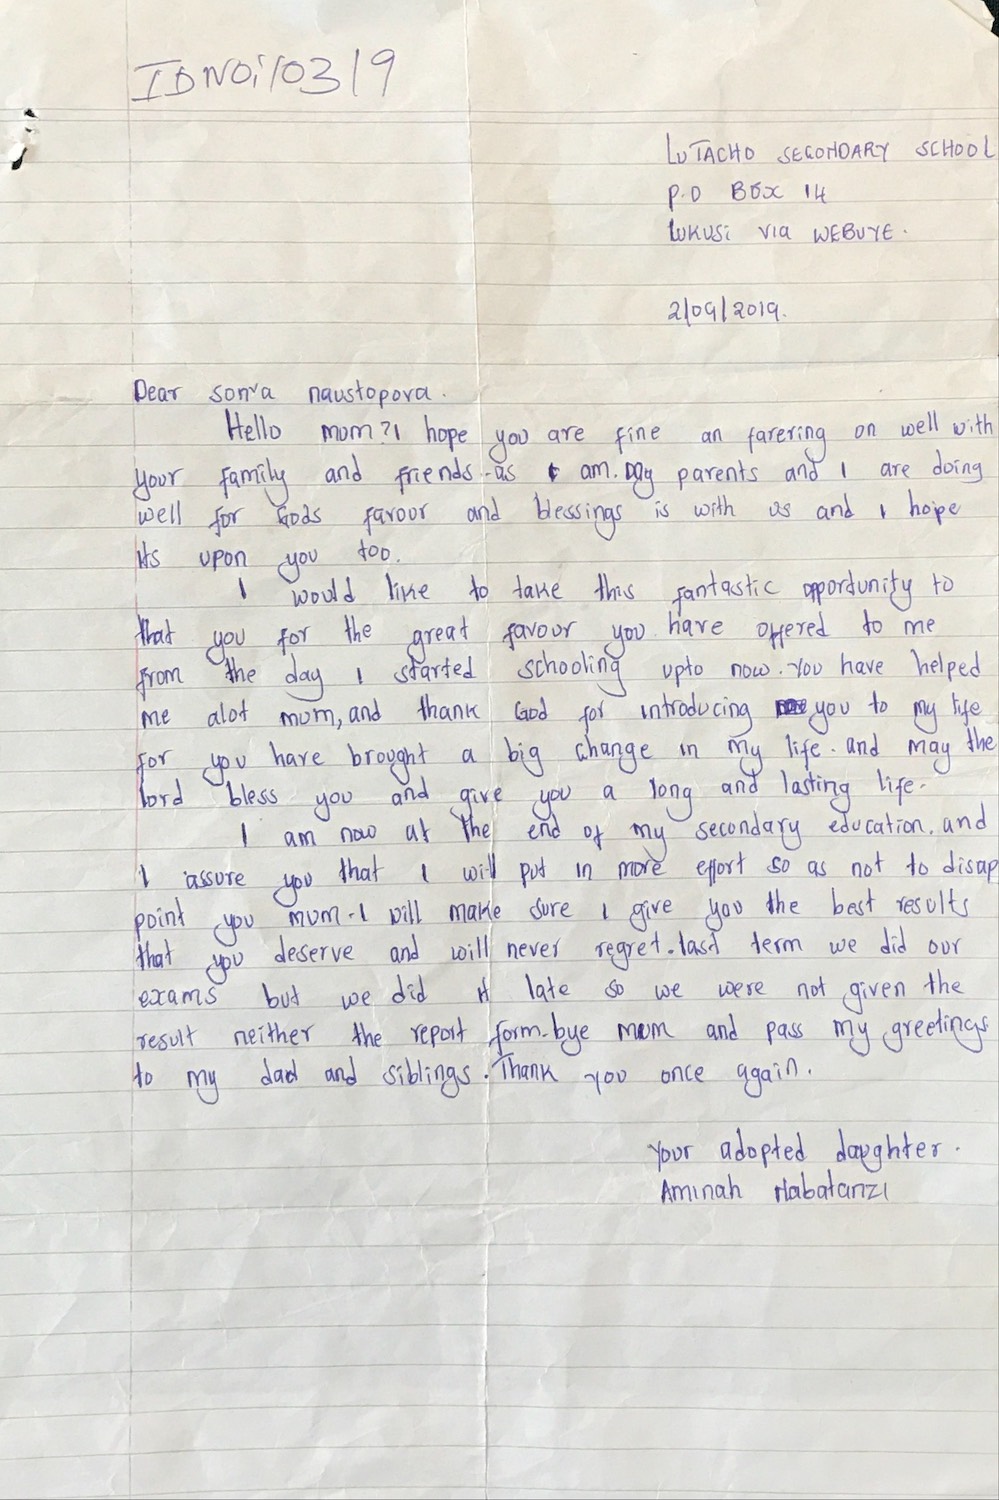 IDNOi/03/9
LUTACHO SECONDARY SCHOOL
P.O BOX 14
LUKUSI VIA WEBUYE.
2/09/2019.
Dear sonya naustopova.
Hello mum?I hope you are fine an farering on well with
your family and friends-as I am. My parents and I are doing
well for Gods favour and blessings is with us and I hope
its upon you too.
I would like to take this fantastic opportunity to
that you for the great favour you have offered to me
from the day I started schooling upto now. You have helped
me alot mum, and thank God for introducing you to my life
for you have brought a big change in my life. and may the
lord bless you and give you a long and lasting life.
I am now at the end of my secondary education. and
I assure you that I will put in more effort so as not to disap
point you mum. I will make sure I give you the best results
that you deserve and will never regret. last term we did our
exams but we did it late so we were not given the
result neither the report form. bye mum and pass my greetings
to my dad and siblings. Thank you once again.
Your adopted daughter.
Aminah Nabatanzi